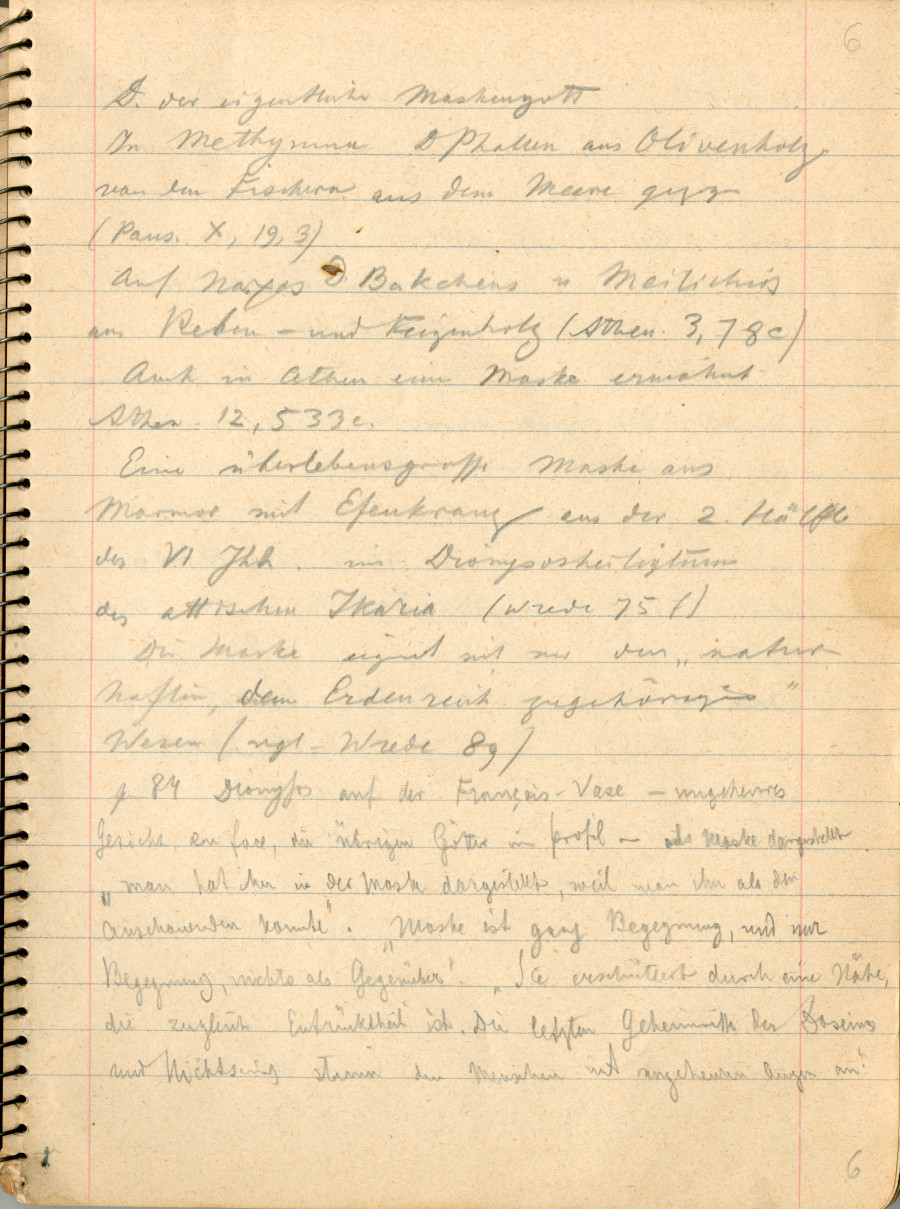 6
D. der eigentliche Maskengott
In Methymna D Phallen aus Olivenholz
von den Fischern aus dem Meere gezog
(Paus. X, 19, 3)
Auf Naxos D Bakcheus u Meilichios
aus Reben - und Feigenholz (Athen. 3, 78 c)
Auch in Athen eine Maske erwähnt
Athen. 12, 533 c.
Eine überlebensgrosse Maske aus
Marmor mit Efeukranz aus der 2. Hälfte
des VI Jhh. im Dionysosheiligtum
des attischen Ikaria (Wrede 75 f)
Die Maske eignet nur den „ natur
haften, dem Erdenreich zugehörigen “
Wesen (vgl - Wrede 89)
p 84 Dionysos auf der François - Vase - ungeheures
Gesicht en face, die übrigen Götter im profil - als Maske dargestellt
„ man hat ihn in der Maske dargestellt, weil man ihn als den
Anschauenden kannte“. „Maske ist ganz Begegnung, und nur
Begegnung, nichts als Gegenüber“. „Sie erschüttert durch eine Nähe,
die zugleich Entrücktheit ist. Die letzten Geheimnisse des Daseins
und Nichtseins starren den Menschen mit ungeheuren Augen an“
6